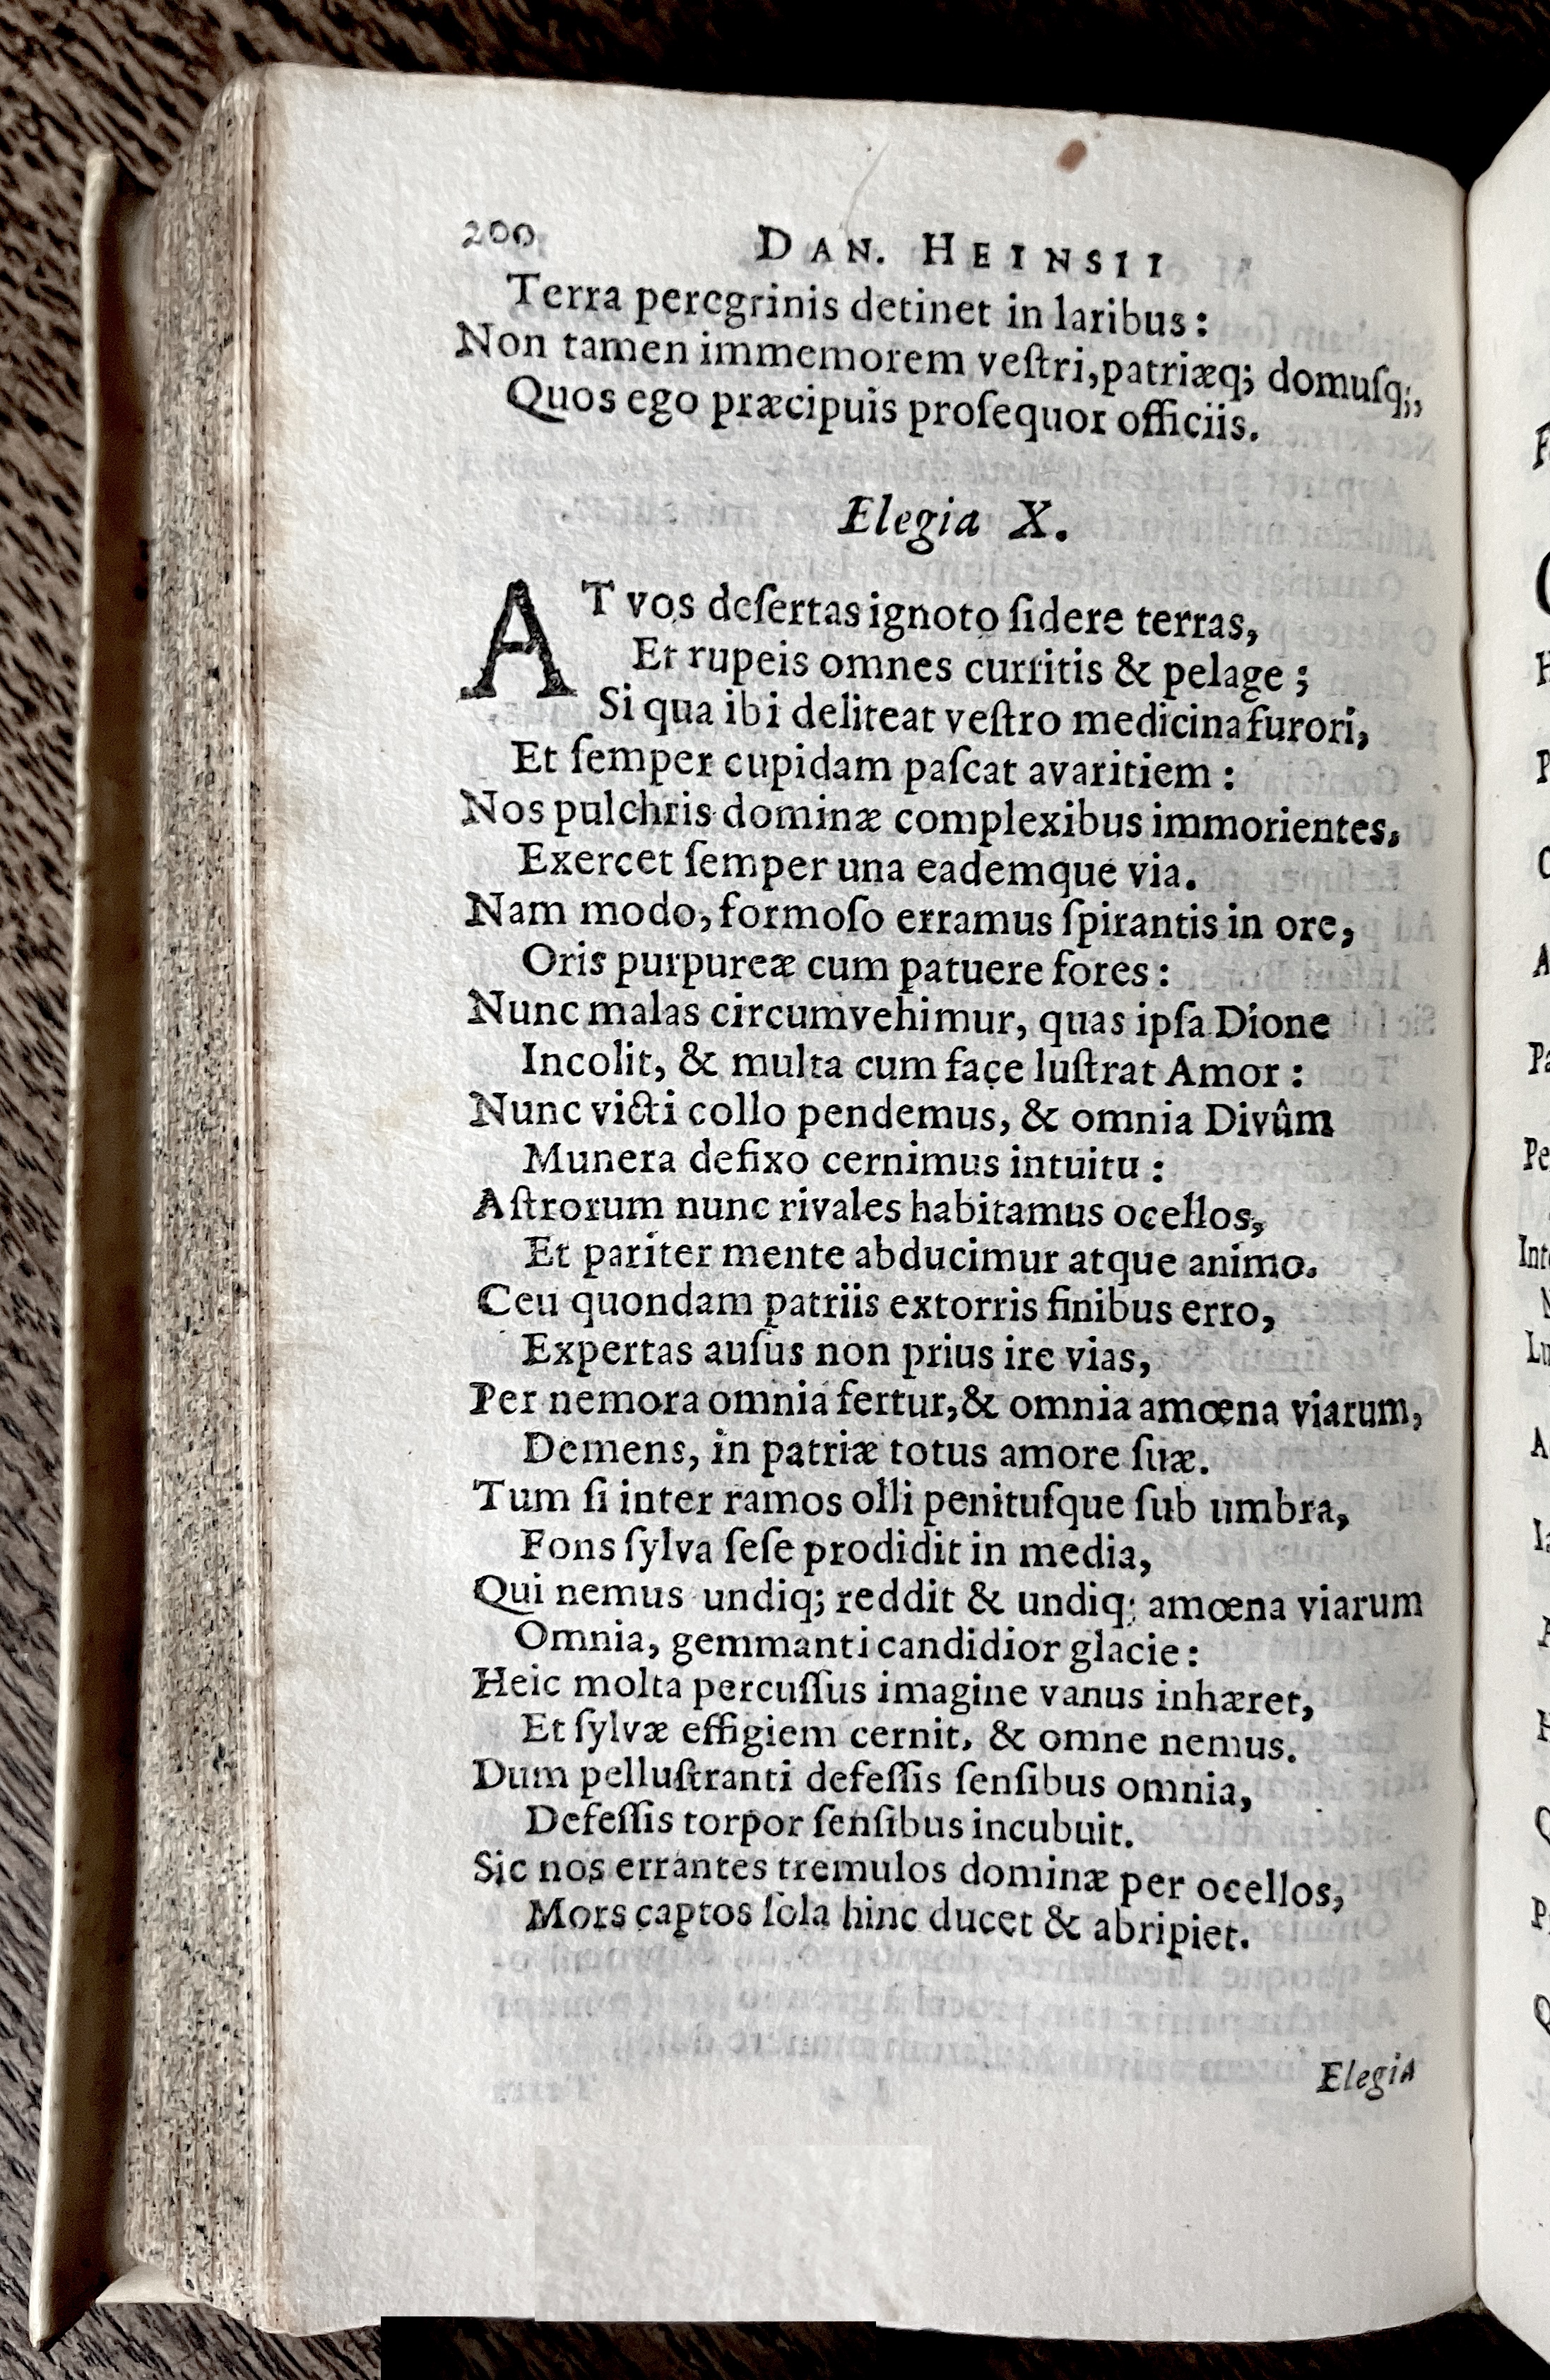 200 DAN. HEINSII
Terra peregrinis detinet in laribus:
Non tamen immemorem veſtri, patriæq; domuſq;,
Quos ego præcipuis proſequor officiis.
Elegia X.
AT vos deſertas ignoto ſidere terras,
Et rupeis omnes curritis & pelage;
Si qua ibi deliteat veſtro medicina furori,
Et ſemper cupidam paſcat avaritiem:
Nos pulchris dominæ complexibus immorientes,
Exercet ſemper una eademque via.
Nam modo, formoſo erramus ſpirantis in ore,
Oris purpureæ cum patuere fores:
Nunc malas circumvehimur, quas ipſa Dione
Incolit, & multa cum face luſtrat Amor:
Nunc victi collo pendemus, & omnia Divûm
Munera defixo cernimus intuitu:
Aſtrorum nunc rivales habitamus ocellos,
Et pariter mente abducimur atque animo.
Ceu quondam patriis extorris finibus erro,
Expertas auſus non prius ire vias,
Per nemora omnia fertur, & omnia amœna viarum,
Demens, in patriæ totus amore ſuæ.
Tum ſi inter ramos olli penituſque ſub umbra,
Fons ſylva ſeſe prodidit in media,
Qui nemus undiq; reddit & undiq; amœna viarum
Omnia, gemmanti candidior glacie:
Heic molta percuſſus imagine vanus inhæret,
Et ſylvæ effigiem cernit, & omne nemus.
Dum pelluſtranti defeſſis ſenſibus omnia,
Defeſſis torpor ſenſibus incubuit.
Sic nos errantes tremulos dominæ per ocellos,
Mors captos ſola hinc ducet & abripiet.
Elegia